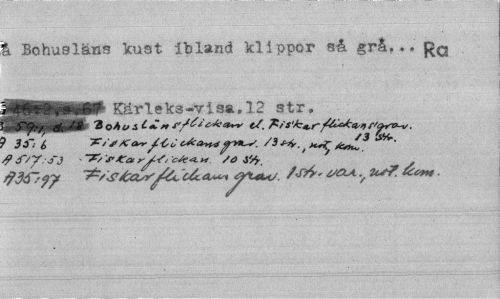 å Bohusläns kust ibland klippor så grå... Ra
s. 67 Kärleks-visa. 12 str.
59:1, s. 18 Bohuslänsflickan el. Fiskarflickans grav. 13 str.
A 35:6 Fiskarflickans grav. 13 str., not, kom.
A 517:53 Fiskarflickan. 10 str.
A35:97 Fiskarflickans grav. 1 str. var., not. kom.